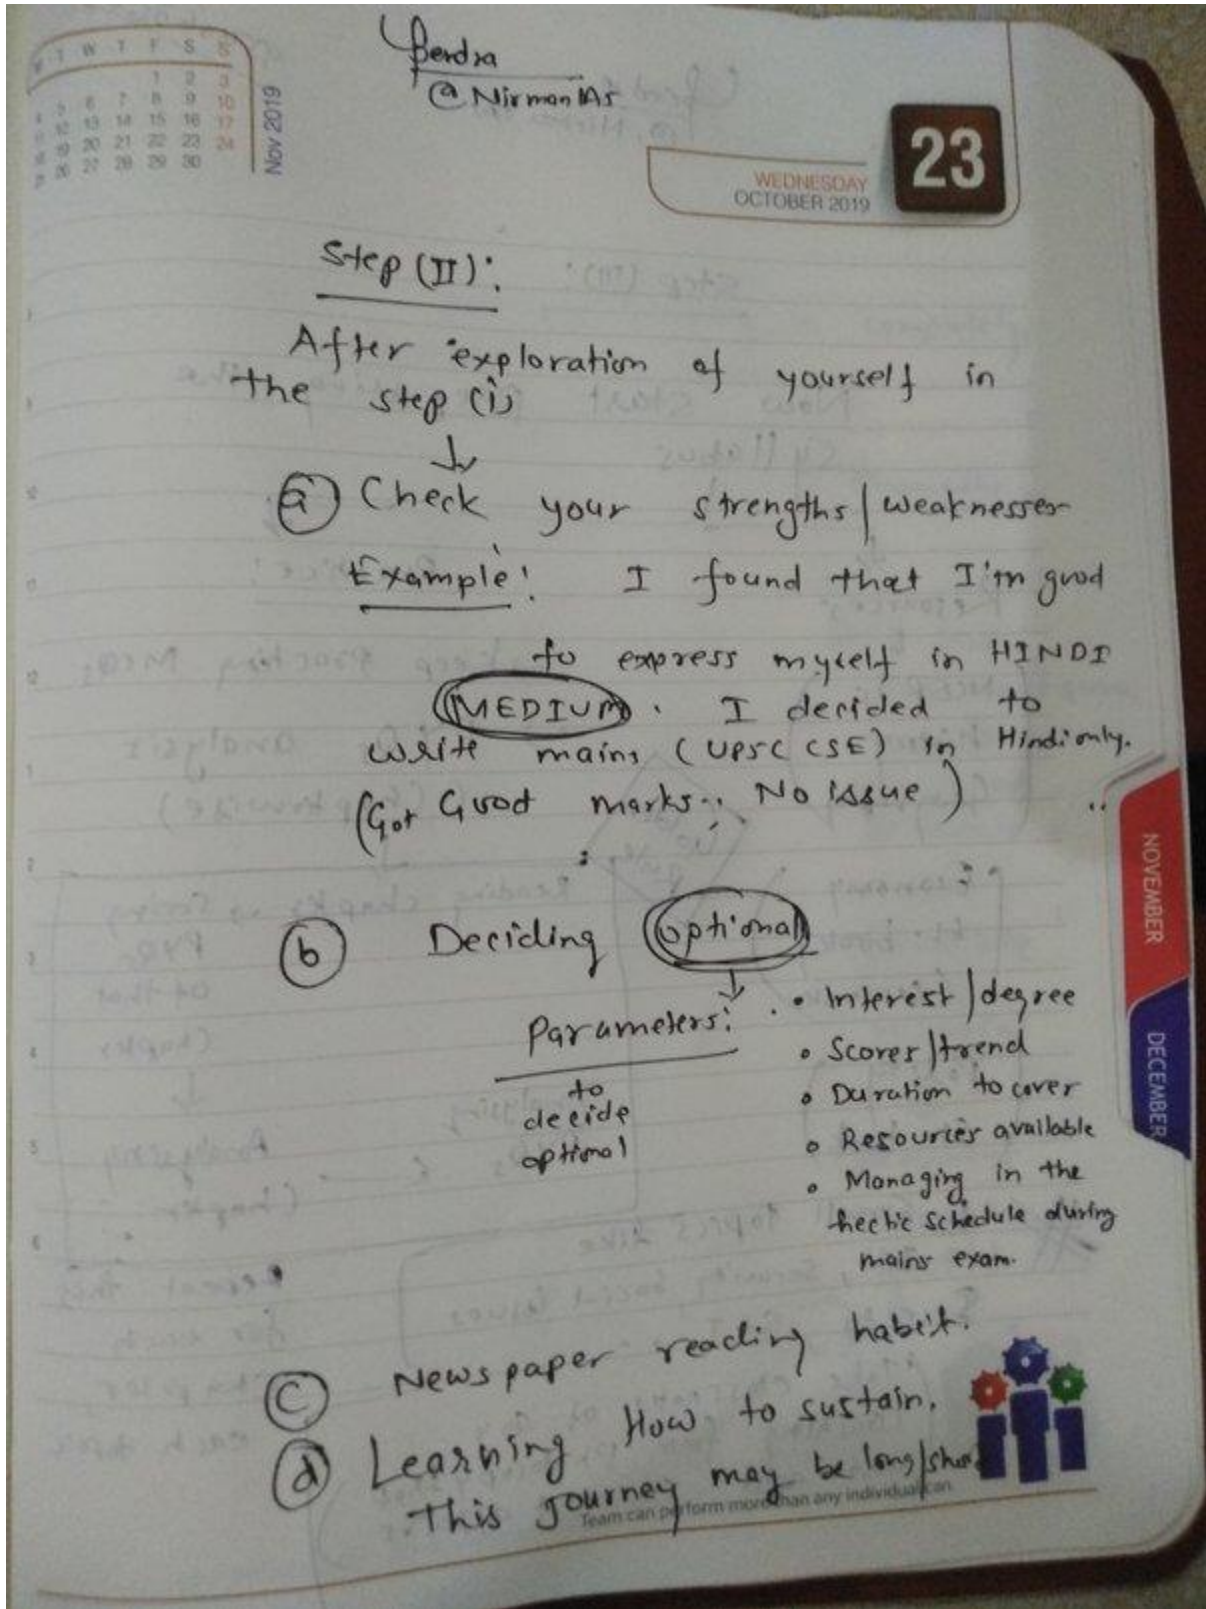 @ Nirman IAS
T W T F S S
1 2 3
5 6 7 8 9 10
12 13 14 15 16 17
19 20 21 22 23 24
26 27 28 29 30
Nov 2019
WEDNESDAY
OCTOBER 2019
23
Step (II):
After exploration of yourself in
the step (i)
a Check your strengths/weaknesses
Example: I found that I'm good
to express myself in HINDI
MEDIUM. I decided to
write mains (UPSC CSE) in Hindi only.
(Got Good marks.. No issue)
b Deciding optional
Parameters:
to
decide
optional
• Interest/degree
• Scores/trend
• Duration to cover
• Resources available
• Managing in the
hectic schedule during
mains exam.
C Newspaper reading habit.
d Learning How to sustain.
This Journey may be long/short
Team can perform more than any individual can
NOVEMBER
DECEMBER